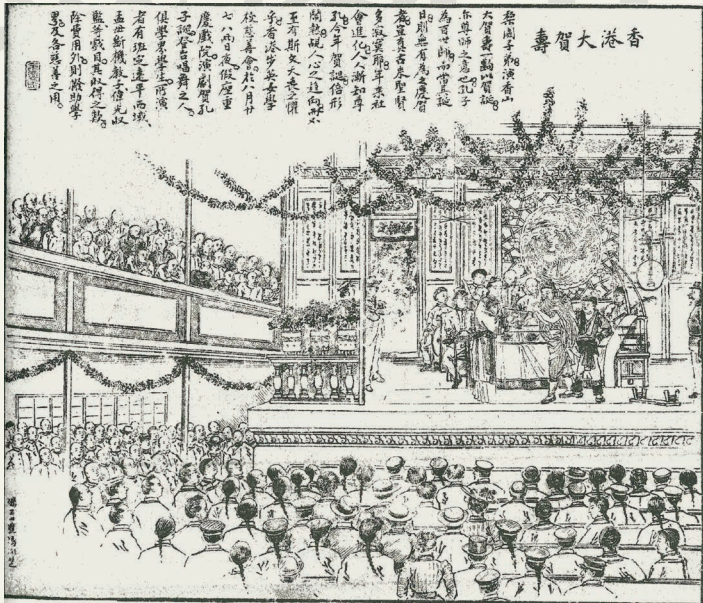 香港大賀壽
梨園子弟演香山
大賀壽一齣以賀誕
亦尊師之意也孔子
為百世師而當其誕
日則無有為之慶賀
者豈真古來聖賢
多寂寞耶年來社
會進化人人漸知尊
孔今年賀誕倍形
鬧熱覘人心之趨向
至有斯文天喪之懼
乎香港步英女學
校慈善會於八月廿
七八兩日夜假座重
慶戲院演劇賀孔
子誕登台唱舞之人
俱學界學生所演
者有班定遠平西域
孟母斷機教子偉光收
監等戲目其收得之款
除費用外則撥助學
界及各慈善之用